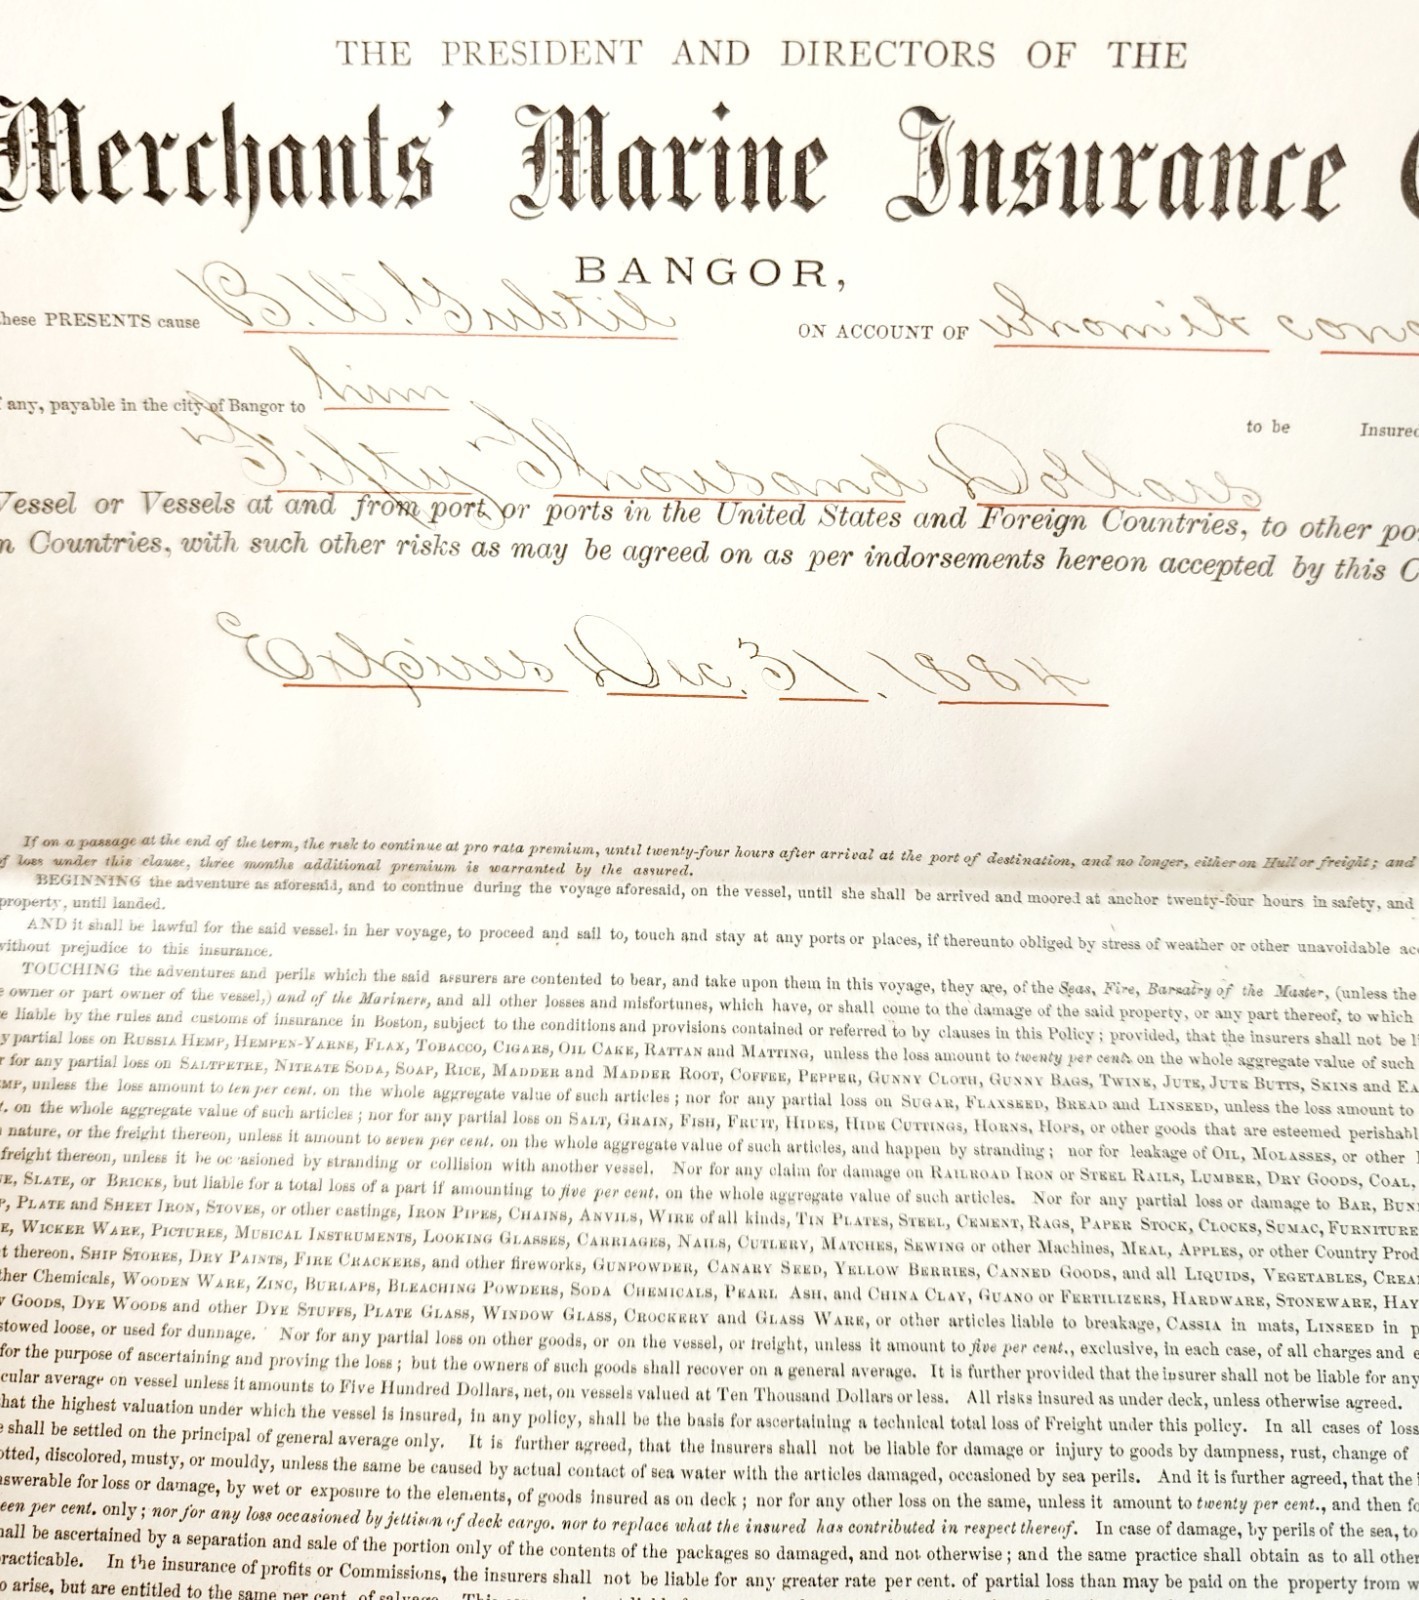 THE PRESIDENT AND DIRECTORS OF THE
Merchants' Marine Insurance C
BANGOR,
these PRESENTS cause B. W. Gubtil ON ACCOUNT OF whom it conc
f any, payable in the city of Bangor to him to be Insured
Fifty Thousand Dollars
Vessel or Vessels at and from port or ports in the United States and Foreign Countries, to other po
n Countries, with such other risks as may be agreed on as per indorsements hereon accepted by this C
Expires Dec. 31, 1884
If on a passage at the end of the term, the risk to continue at pro rata premium, until twenty-four hours after arrival at the port of destination, and no longer, either on Hull or freight; and
f loss under this clause, three months additional premium is warranted by the assured.
BEGINNING the adventure as aforesaid, and to continue during the voyage aforesaid, on the vessel, until she shall be arrived and moored at anchor twenty-four hours in safety, and
property, until landed.
AND it shall be lawful for the said vessel, in her voyage, to proceed and sail to, touch and stay at any ports or places, if thereunto obliged by stress of weather or other unavoidable acc
without prejudice to this insurance.
TOUCHING the adventures and perils which the said assurers are contented to bear, and take upon them in this voyage, they are, of the Seas, Fire, Barratry of the Master, (unless the
e owner or part owner of the vessel,) and of the Mariners, and all other losses and misfortunes, which have, or shall come to the damage of the said property, or any part thereof, to which
e liable by the rules and customs of insurance in Boston, subject to the conditions and provisions contained or referred to by clauses in this Policy; provided, that the insurers shall not be li
y partial loss on RUSSIA HEMP, HEMPEN-YARNS, FLAX, TOBACCO, CIGARS, OIL CAKE, RATTAN and MATTING, unless the loss amount to twenty per cent. on the whole aggregate value of such
r for any partial loss on SALTPETRE, NITRATE SODA, SOAP, RICE, MADDER and MADDER ROOT, COFFEE, PEPPER, GUNNY CLOTH, GUNNY BAGS, TWINE, JUTE, JUTE BUTTS, SKINS and EA
EMP, unless the loss amount to ten per cent. on the whole aggregate value of such articles; nor for any partial loss on SUGAR, FLAXSEED, BREAD and LINSEED, unless the loss amount to
t. on the whole aggregate value of such articles; nor for any partial loss on SALT, GRAIN, FISH, FRUIT, HIDES, HIDE CUTTINGS, HORNS, HOPS, or other goods that are esteemed perishabl
n nature, or the freight thereon, unless it amount to seven per cent. on the whole aggregate value of such articles, and happen by stranding; nor for leakage of OIL, MOLASSES, or other
freight thereon, unless it be occasioned by stranding or collision with another vessel. Nor for any claim for damage on RAILROAD IRON or STEEL RAILS, LUMBER, DRY GOODS, COAL,
NE, SLATE, or BRICKS, but liable for a total loss of a part if amounting to five per cent. on the whole aggregate value of such articles. Nor for any partial loss or damage to BAR, BUN
P, PLATE and SHEET IRON, STOVES, or other castings, IRON PIPES, CHAINS, ANVILS, WIRE of all kinds, TIN PLATES, STEEL, CEMENT, RAGS, PAPER STOCK, CLOCKS, SUMAC, FURNITURE
E, WICKER WARE, PICTURES, MUSICAL INSTRUMENTS, LOOKING GLASSES, CARRIAGES, NAILS, CUTLERY, MATCHES, SEWING or other Machines, MEAL, APPLES, or other Country Prod
t thereon, SHIP STORES, DRY PAINTS, FIRE CRACKERS, and other fireworks, GUNPOWDER, CANARY SEED, YELLOW BERRIES, CANNED GOODS, and all LIQUIDS, VEGETABLES, CREA
ther Chemicals, WOODEN WARE, ZINC, BURLAPS, BLEACHING POWDERS, SODA CHEMICALS, PEARL ASH, and CHINA CLAY, GUANO or FERTILIZERS, HARDWARE, STONEWARE, HAY
Y GOODS, DYE WOODS and other DYE STUFFS, PLATE GLASS, WINDOW GLASS, CROCKERY and GLASS WARE, or other articles liable to breakage, CASSIA in mats, LINSEED in p
stowed loose, or used for dunnage. Nor for any partial loss on other goods, or on the vessel, or freight, unless it amount to five per cent., exclusive, in each case, of all charges and e
for the purpose of ascertaining and proving the loss; but the owners of such goods shall recover on a general average. It is further provided that the insurer shall not be liable for any
cular average on vessel unless it amounts to Five Hundred Dollars, net, on vessels valued at Ten Thousand Dollars or less. All risks insured as under deck, unless otherwise agreed.
hat the highest valuation under which the vessel is insured, in any policy, shall be the basis for ascertaining a technical total loss of Freight under this policy. In all cases of loss
e shall be settled on the principal of general average only. It is further agreed, that the Insurers shall not be liable for damage or injury to goods by dampness, rust, change of
otted, discolored, musty, or mouldy, unless the same be caused by actual contact of sea water with the articles damaged, occasioned by sea perils. And it is further agreed, that the i
nswerable for loss or damage, by wet or exposure to the elements, of goods insured as on deck; nor for any other loss on the same, unless it amount to twenty per cent., and then fo
een per cent. only; nor for any loss occasioned by jettison of deck cargo, nor to replace what the insured has contributed in respect thereof. In case of damage, by perils of the sea, to
hall be ascertained by a separation and sale of the portion only of the contents of the packages so damaged, and not otherwise; and the same practice shall obtain as to all other
practicable. In the insurance of profits or Commissions, the insurers shall not be liable for any greater rate per cent. of partial loss than may be paid on the property from w
o arise, but are entitled to the same per cent. of salvage.